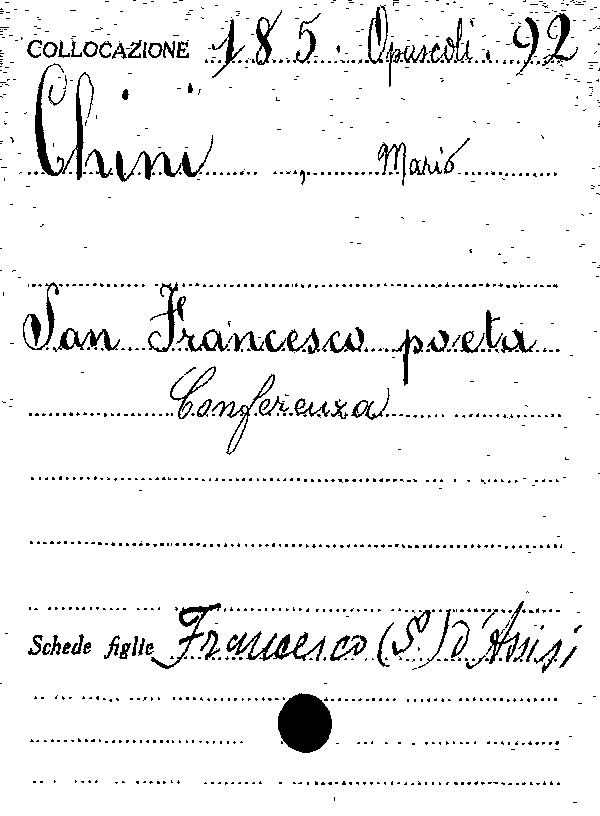 COLLOCAZIONE 185. Opuscoli. 92
Chini, Mario
San Francesco poeta
Conferenza
Schede figlie Francesco (S.) d'Assisi